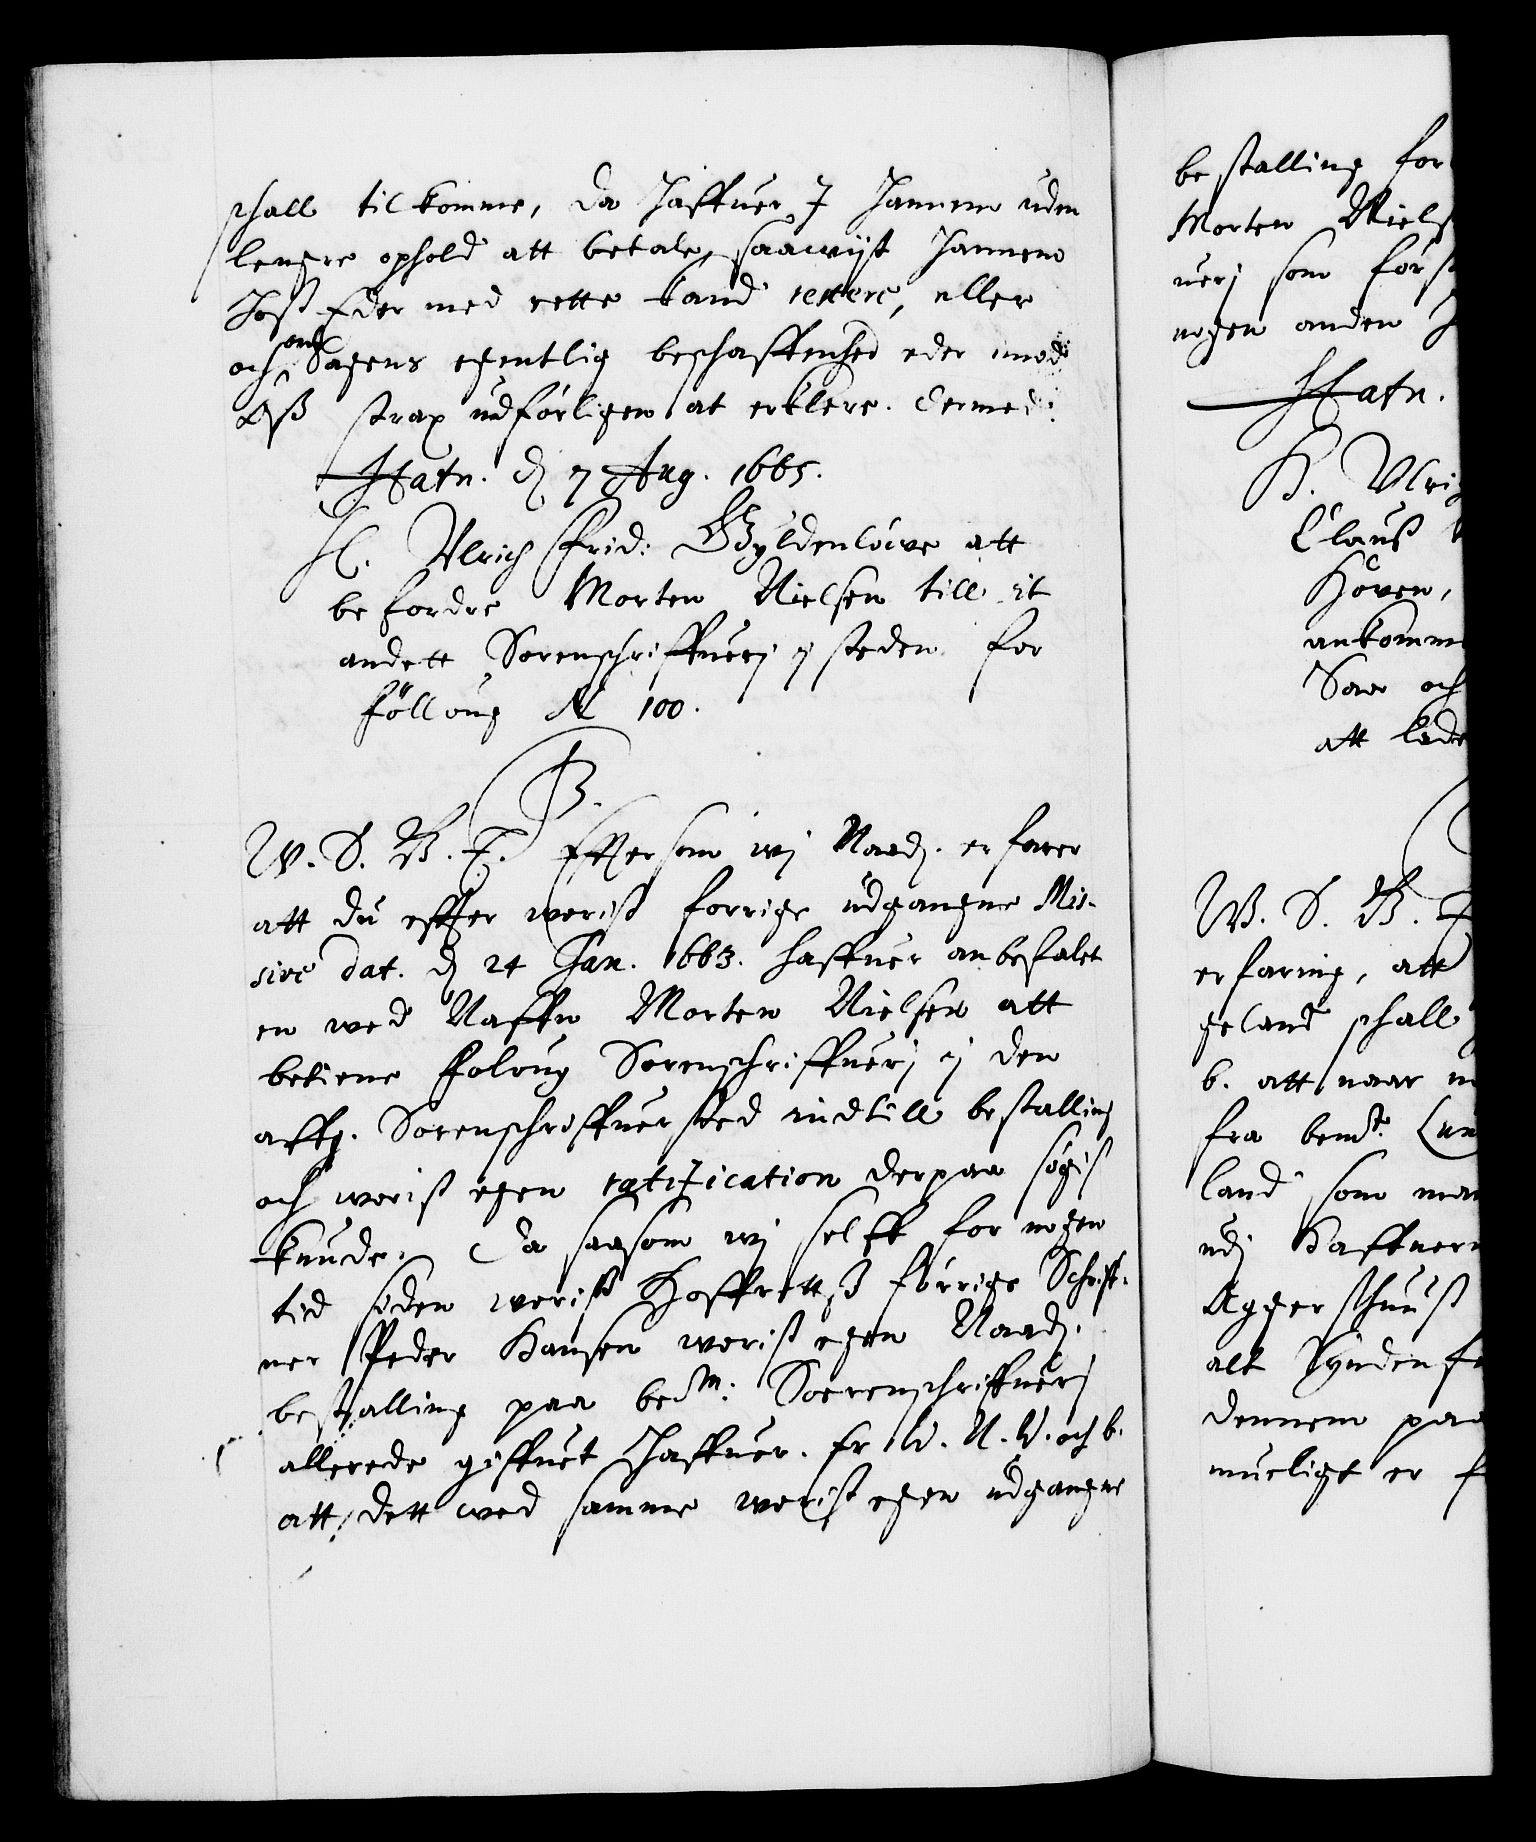 schall tilkomme, da haffuer I hannem uden
lengre ophold att betale, saawijt hannem
hoß Eder med rette kand restere, eller
och om Sagens egentlig beschaffenhed eder imod
Oß strax udförligen at erklere. Dermed:
Hafn. dj 7 Aug. 1665.
H. Ulrich Frid: Gyldenlöwe att
befordre Morten Nielsen till it
andett Sorenschriffuerj j steden for
fölloug N 100.
F3.
W. S. G. T. Efftersom wj Naadj. erfarer
att du effter worist forrige udgangne Mis-
sive dat. dj 24 Jan. 1663. haffuer anbefalet
en wed Naffn Morten Nielsen att
betiene foloug Sorenschriffuerj j den
affg. Sorenschriffuer sted indtill bestalling
och worist egen ratification derpaa sögis
kunde. Da saasom wj selff for nogen
tid siden worist Hoffrettß förrige Schrif-
uer Peder Hansen worist egen Naadj.
bestalling paa bem: Soerenschriffuerj
allerede giffuet haffuer. Er W. N. W. och b.
att dett wed samme worist egen udgangne
bestalling for
Morten Niels
uerj som först
nogen anden
Hafn.
H. Ulri
Clauß
Höven,
ankomm
Saa och
att lade
W. S. G. T
erfaring, att
geland schall
b. att naar
fra bemt.
land som
udj Haffuer
Aggerßhuuß
alt Synden
dennem paa
mueligt er